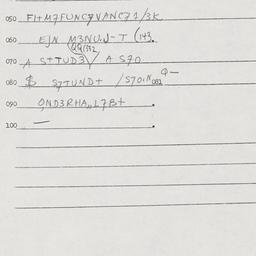 050 FI+M7FUNC7VANC71/3K
060 EJN M3NU.J-T (143.
070 A S+TUD3/ A S70
080 $ S7TUND+ /S70.N082
090 0,ND3RHA,,L7B+ .
100 — .